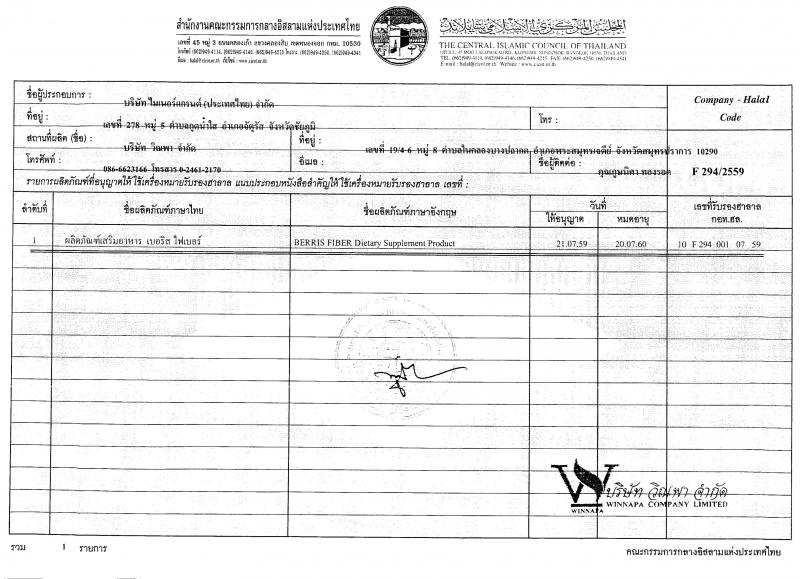 สำนักงานคณะกรรมการกลางอิสลามแห่งประเทศไทย
เลขที่ 45 หมู่ 3 ถนนคลองเก้า แขวงคลองสิบ เขตหนองจอก กทม. 10530
โทรศัพท์ (662)949-4114, (662)949-4146, (662)949-4215 โทรสาร. (662)949-4250, (662)949-4341
อีเมล : halal@cicot.or.th เว็บไซต์ : www.cicot.or.th
THE CENTRAL ISLAMIC COUNCIL OF THAILAND
OFFICE. 45 MOO 3, KLONGKAO RD., KLONGSIB, NONGCHOK, BANGKOK 10530, THAILAND
TEL. (662)949-4114, (662)949-4146, (662)949-4215 FAX: (662)949-4250, (662)949-4341
E-mail : halal@cicot.or.th Website : www.cicot.or.th
ชื่อผู้ประกอบการ :
บริษัท ไมเนอร์แกรนด์ (ประเทศไทย) จำกัด
Company - Halal
Code
ที่อยู่ :
เลขที่ 278 หมู่ 5 ตำบลกุดน้ำใส อำเภอจัตุรัส จังหวัดชัยภูมิ
โทร :
สถานที่ผลิต (ชื่อ) :
บริษัท วิณพา จำกัด
ที่อยู่ :
เลขที่ 19/4-6 หมู่ 8 ตำบลในคลองบางปลากด, อำเภอพระสมุทรเจดีย์ จังหวัดสมุทรปราการ 10290
โทรศัพท์ :
086-6623166 โทรสาร 0-2461-2170
อีเมล :
ชื่อผู้ติดต่อ :
คุณภูษนิศา ทองรอด
F 294/2559
รายการผลิตภัณฑ์ที่อนุญาตให้ ใช้เครื่องหมายรับรองฮาลาล แนบประกอบหนังสือสำคัญให้ ใช้เครื่องหมายรับรองฮาลาล เลขที่ :
ลำดับที่ ชื่อผลิตภัณฑ์ภาษาไทย ชื่อผลิตภัณฑ์ภาษาอังกฤษ วันที่ เลขที่รับรองฮาลาล
ให้อนุญาต หมดอายุ กอท.ฮล.
1 ผลิตภัณฑ์เสริมอาหาร เบอริส ไฟเบอร์ BERRIS FIBER Dietary Supplement Product 21.07.59 20.07.60 10 F 294 001 07 59
บริษัท วิณพา จำกัด
WINNAPA COMPANY LIMITED
WINNAPA
รวม 1 รายการ
คณะกรรมการกลางอิสลามแห่งประเทศไทย